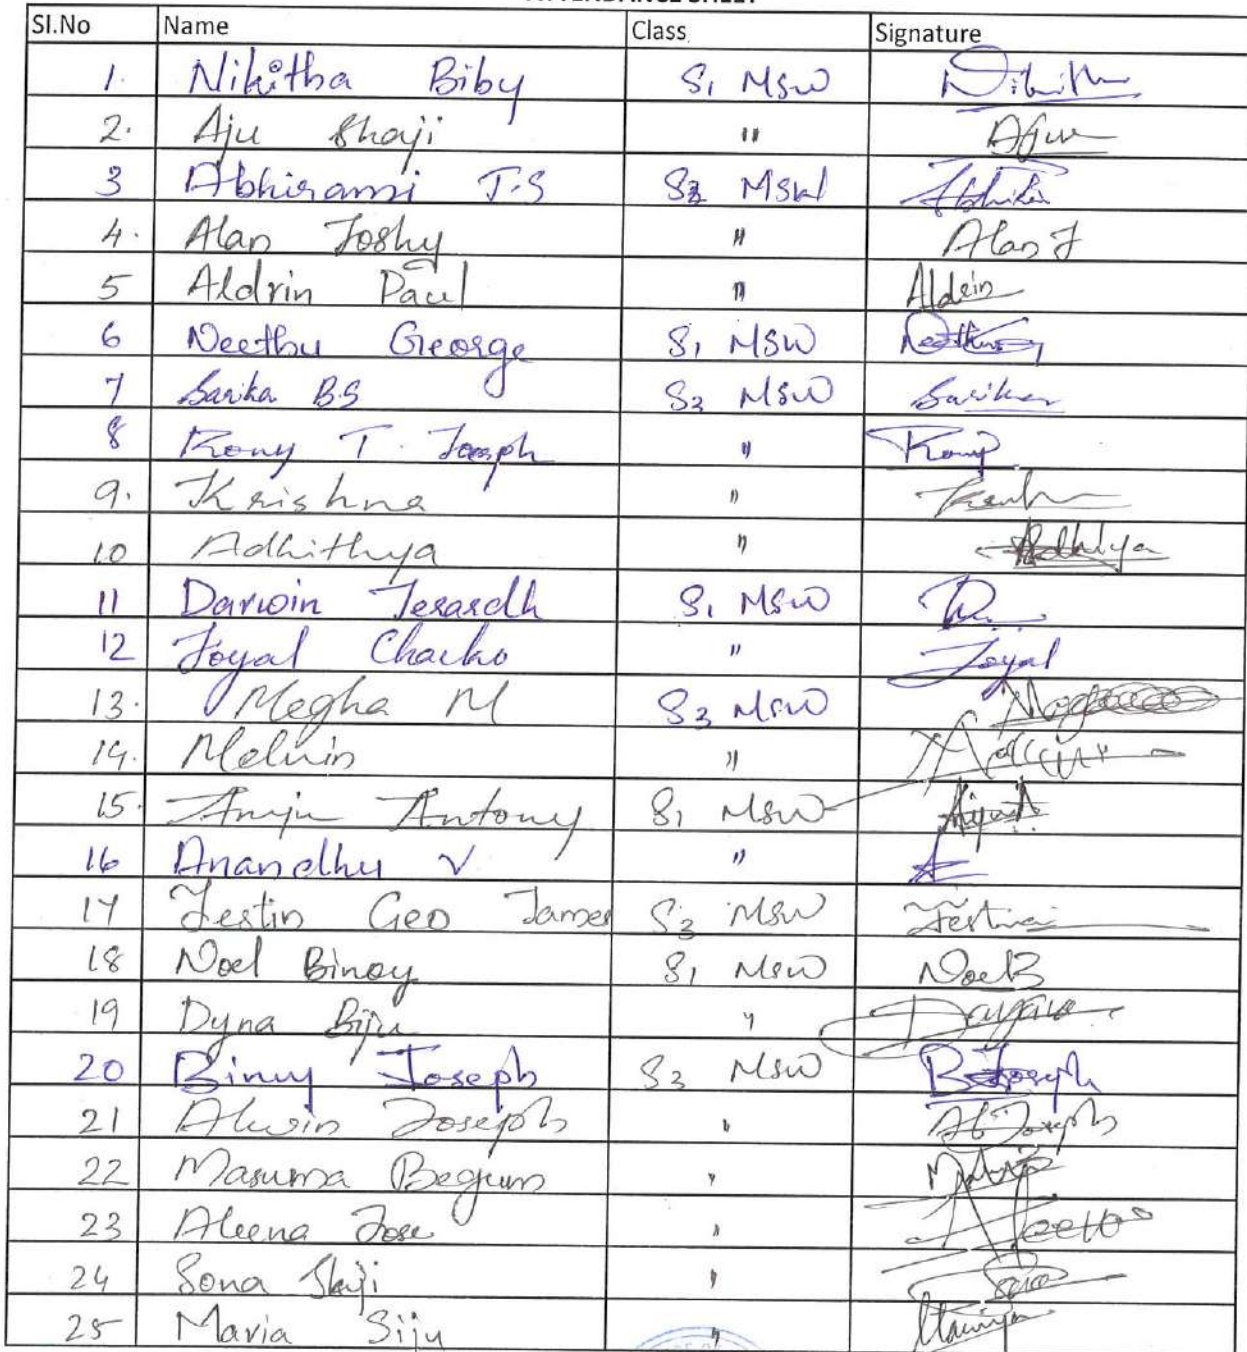 ATTENDANCE SHEET
Sl.No Name Class Signature
1. Nikitha Biby S1 MSW Nikith
2. Aju Shaji " Aju
3 Abhirami T.S S3 MSW Abhirami
4. Alan Joshy " Alan J
5 Aldrin Paul " Aldrin
6 Neethu George S1 MSW Neethu
7 Sarika B.S S3 MSW Sarika
8 Rony T. Joseph " Rony
9. Krishna "
10 Adhithya "
11 Darwin Jerardh S1 MSW
12 Joyal Chacko " Joyal
13. Megha M S3 MSW
14. Melvin "
15. Anju Antony S1 MSW
16 Anandhu V "
17 Jestin Geo James S3 MSW Jestin
18 Noel Binoy S1 MSW Noel B
19 Dyna Biju "
20 Binny Joseph S3 MSW B Joseph
21 Alwin Joseph " Al Joseph
22 Masuma Begum "
23 Aleena Jose "
24 Sona Shaji " Sona
25 Maria Siju "